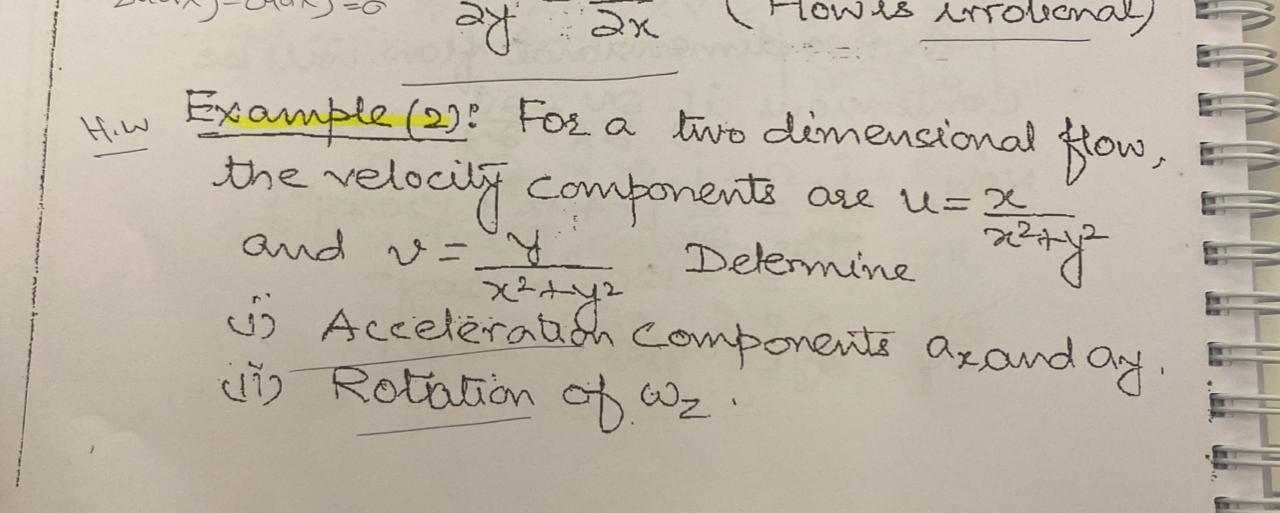 ∂y ∂x (Flow is irrotional)
H.W Example (2): For a two dimensional flow,
the velocity components are u = x/(x²+y²)
and v = y/(x²+y²) Determine
(i) Acceleration components ax and ay.
(ii) Rotation of ωz.